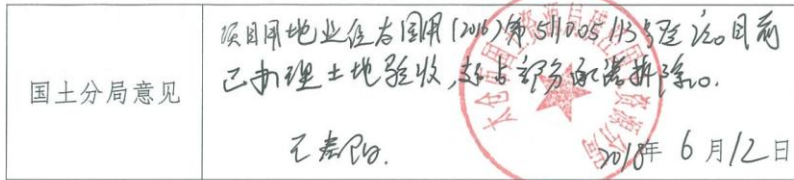 国土分局意见
项目用地业经太国用(2016)第511005113号登记。目前
已办理土地验收,超占部分承诺拆除。
2018年6月12日